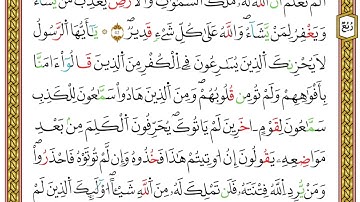 الم تعلم ان الله له ملك السموت والارض يعذب من يشاء
ويغفر لمن يشاء والله على كل شيء قدير ٤٢ يأيها الرسول
لا يحزنك الذين يسرعون في الكفر من الذين قالوا ءامنا
بأفوههم ولم تومن قلوبهم ومن الذين هادوا سمعون للكذب
سمعون لقوم اخرين لم ياتوك يحرفون الكلم من بعد
مواضعه يقولون ان اوتيتم هذا فخذوه وإن لم توتوه فاحذروا
ومن يرد الله فتنته فلن تملك له من الله شيئا اولئك الذين لم
ربع